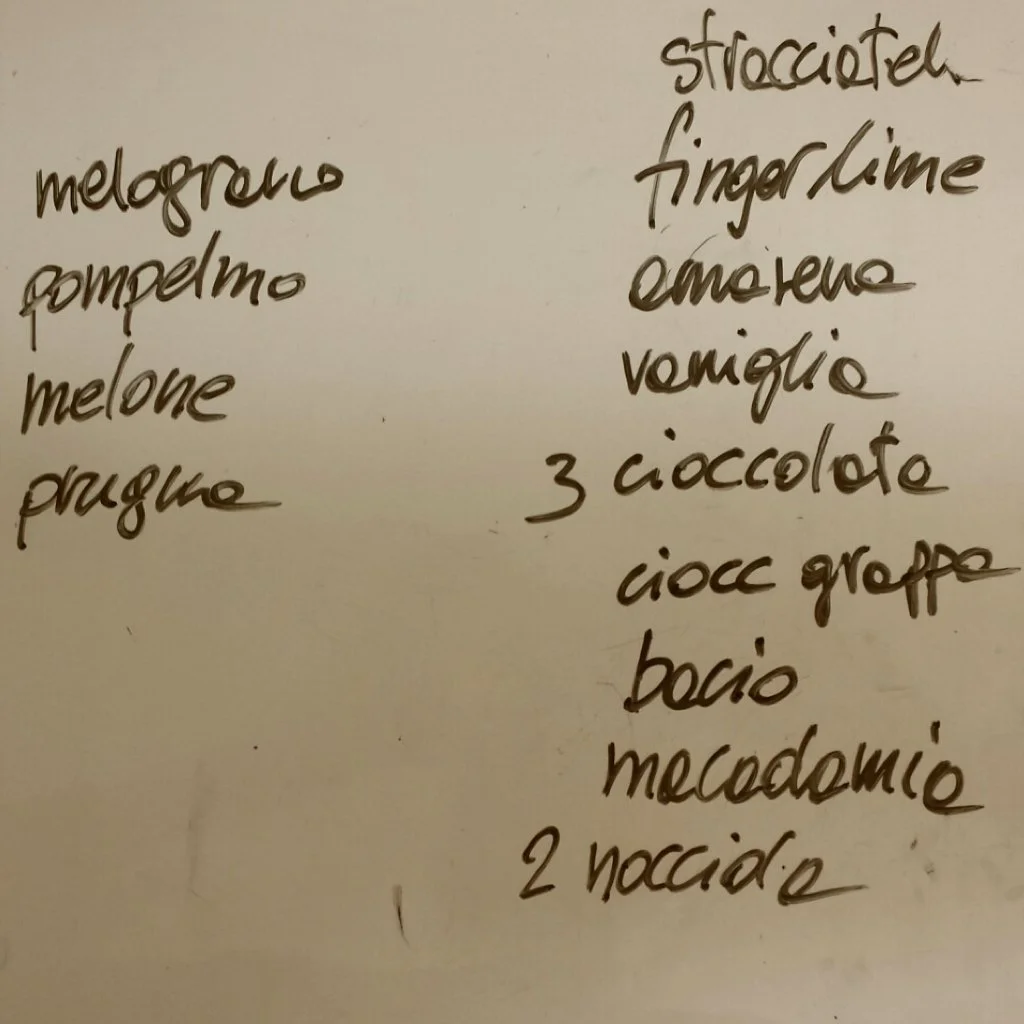 melograno
pompelmo
melone
prugna
stracciatella
finger lime
amarena
vaniglia
3 cioccolata
ciocc grappa
bacio
macadamia
2 nocciola